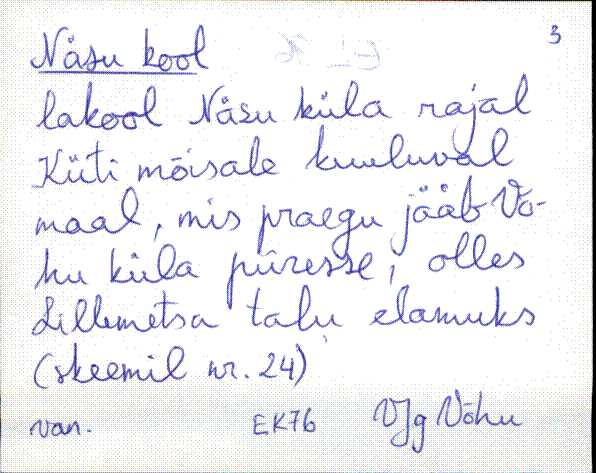 3
Näsu kool
lakool Näsu küla rajal
Küti mõisale kuuluval
maal, mis praegu jääb Võ-
hu küla piiresse, olles
Lillemetsa talu elamuks
(skeemil nr. 24)
van. EK76 VJg Võhu